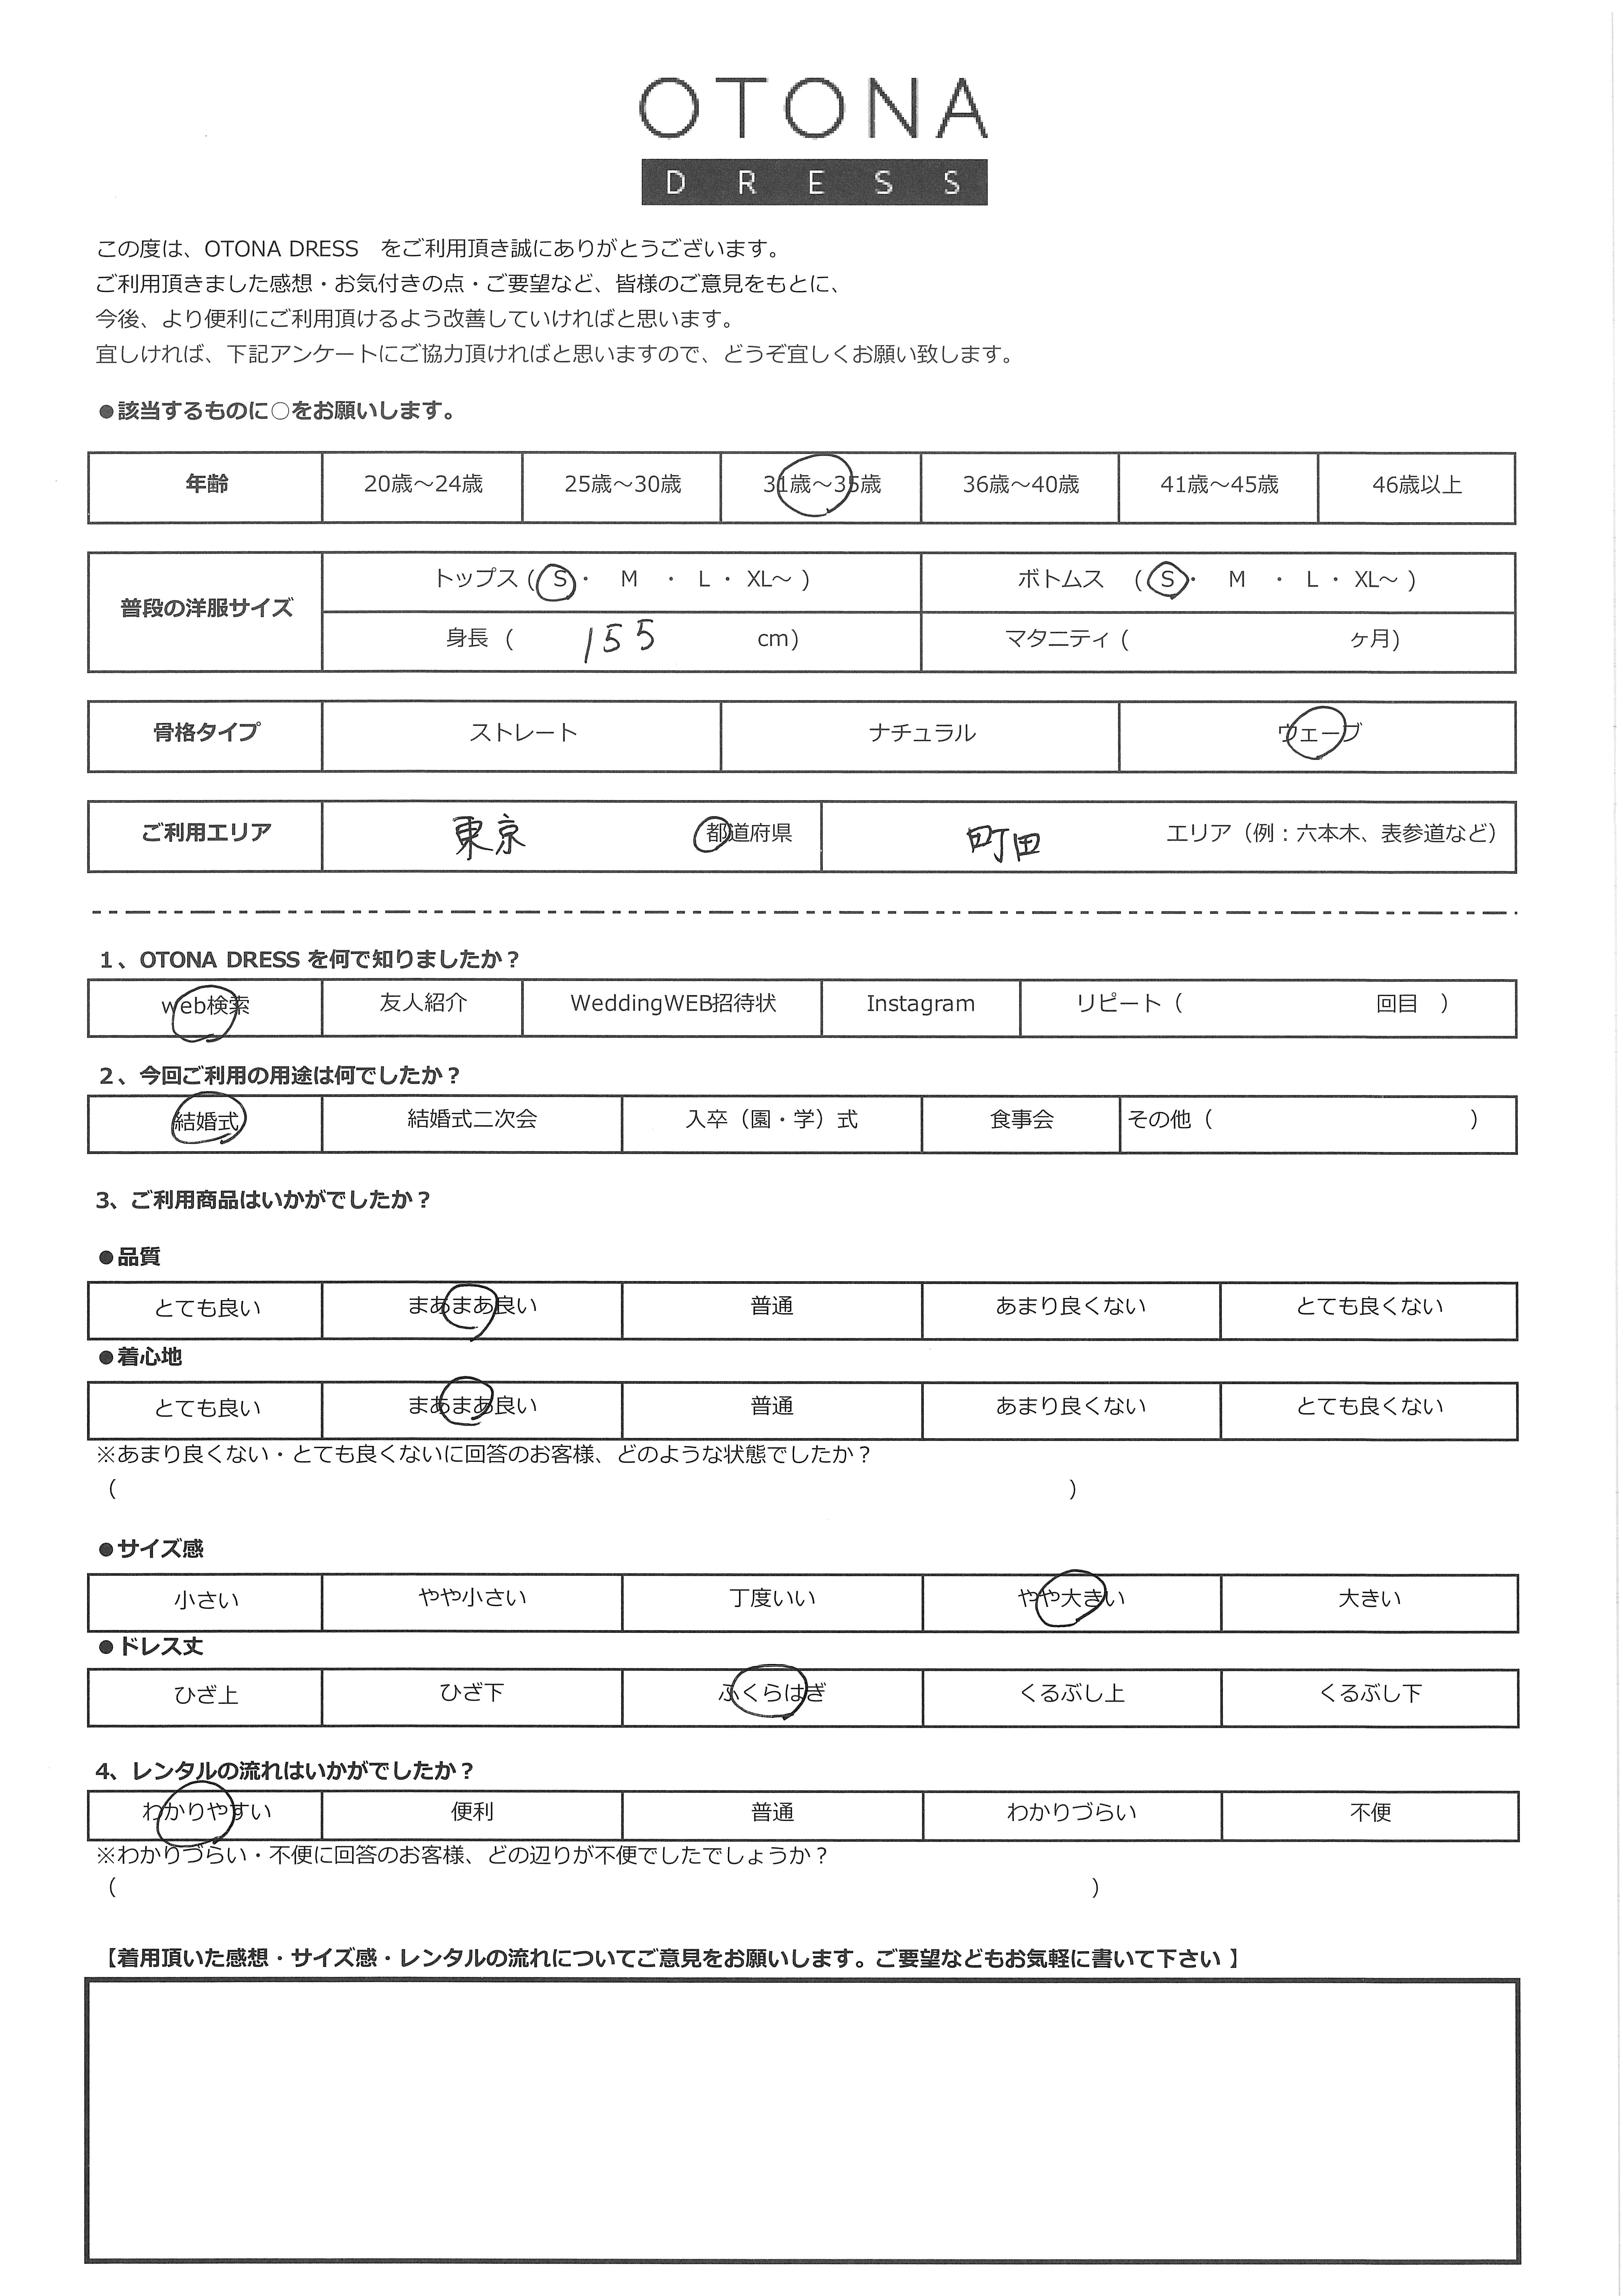 OTONA
DRESS
この度は、OTONA DRESS をご利用頂き誠にありがとうございます。
ご利用頂きました感想・お気付きの点・ご要望など、皆様のご意見をもとに、
今後、より便利にご利用頂けるよう改善していければと思います。
宜しければ、下記アンケートにご協力頂ければと思いますので、どうぞ宜しくお願い致します。
●該当するものに○をお願いします。
年齢 20歳～24歳 25歳～30歳 31歳～35歳 36歳～40歳 41歳～45歳 46歳以上
普段の洋服サイズ トップス ( S ・ M ・ L ・ XL～ ) ボトムス ( S ・ M ・ L ・ XL～ )
身長 ( 155 cm) マタニティ ( ヶ月)
骨格タイプ ストレート ナチュラル ウェーブ
ご利用エリア 東京 都道府県 町田 エリア（例：六本木、表参道など）
1、OTONA DRESS を何で知りましたか？
web検索 友人紹介 WeddingWEB招待状 Instagram リピート（ 回目 ）
2、今回ご利用の用途は何でしたか？
結婚式 結婚式二次会 入卒（園・学）式 食事会 その他（ ）
3、ご利用商品はいかがでしたか？
●品質
とても良い まあまあ良い 普通 あまり良くない とても良くない
●着心地
とても良い まあまあ良い 普通 あまり良くない とても良くない
※あまり良くない・とても良くないに回答のお客様、どのような状態でしたか？
（ ）
●サイズ感
小さい やや小さい 丁度いい やや大きい 大きい
●ドレス丈
ひざ上 ひざ下 ふくらはぎ くるぶし上 くるぶし下
4、レンタルの流れはいかがでしたか？
わかりやすい 便利 普通 わかりづらい 不便
※わかりづらい・不便に回答のお客様、どの辺りが不便でしたでしょうか？
（ ）
【着用頂いた感想・サイズ感・レンタルの流れについてご意見をお願いします。ご要望などもお気軽に書いて下さい 】